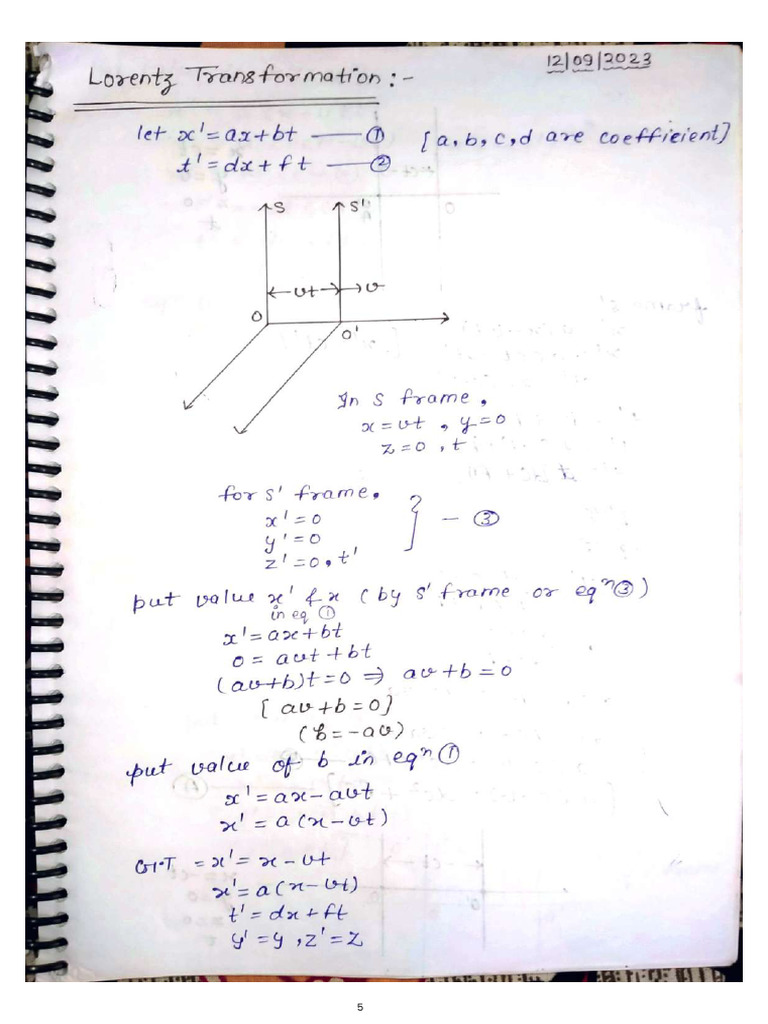 Lorentz Transformation:-
12/09/2023
let x' = ax+bt —— ①
[a, b, c, d are coefficient]
t' = dx + ft —— ②
S
S'
vt
v
O
O'
In S frame,
x = vt, y = 0
z = 0, t
for S' frame.
x' = 0
y' = 0
} — ③
z' = 0, t'
put value x' & x (by S' frame or eqⁿ ③)
in eq ①
x' = ax+bt
0 = avt + bt
(av+b)t = 0 ⇒ av + b = 0
[av + b = 0]
(b = -av)
put value of b in eqⁿ ①
x' = ax - avt
x' = a(x - vt)
G.T = x' = x - vt
x' = a(x - vt)
t' = dx + ft
y' = y, z' = z
5